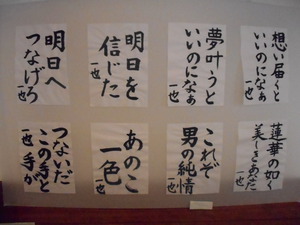 想い届くと
いいのになぁ
一也
夢叶うと
いいのになぁ
一也
明日を
信じた
一也
明日へ
つなげろ
一也
蓮華の如く
美しきあなた
一也
これぞ
男の純情
一也
あのこ
一色
一也
つないだ
この手と
手が
一也